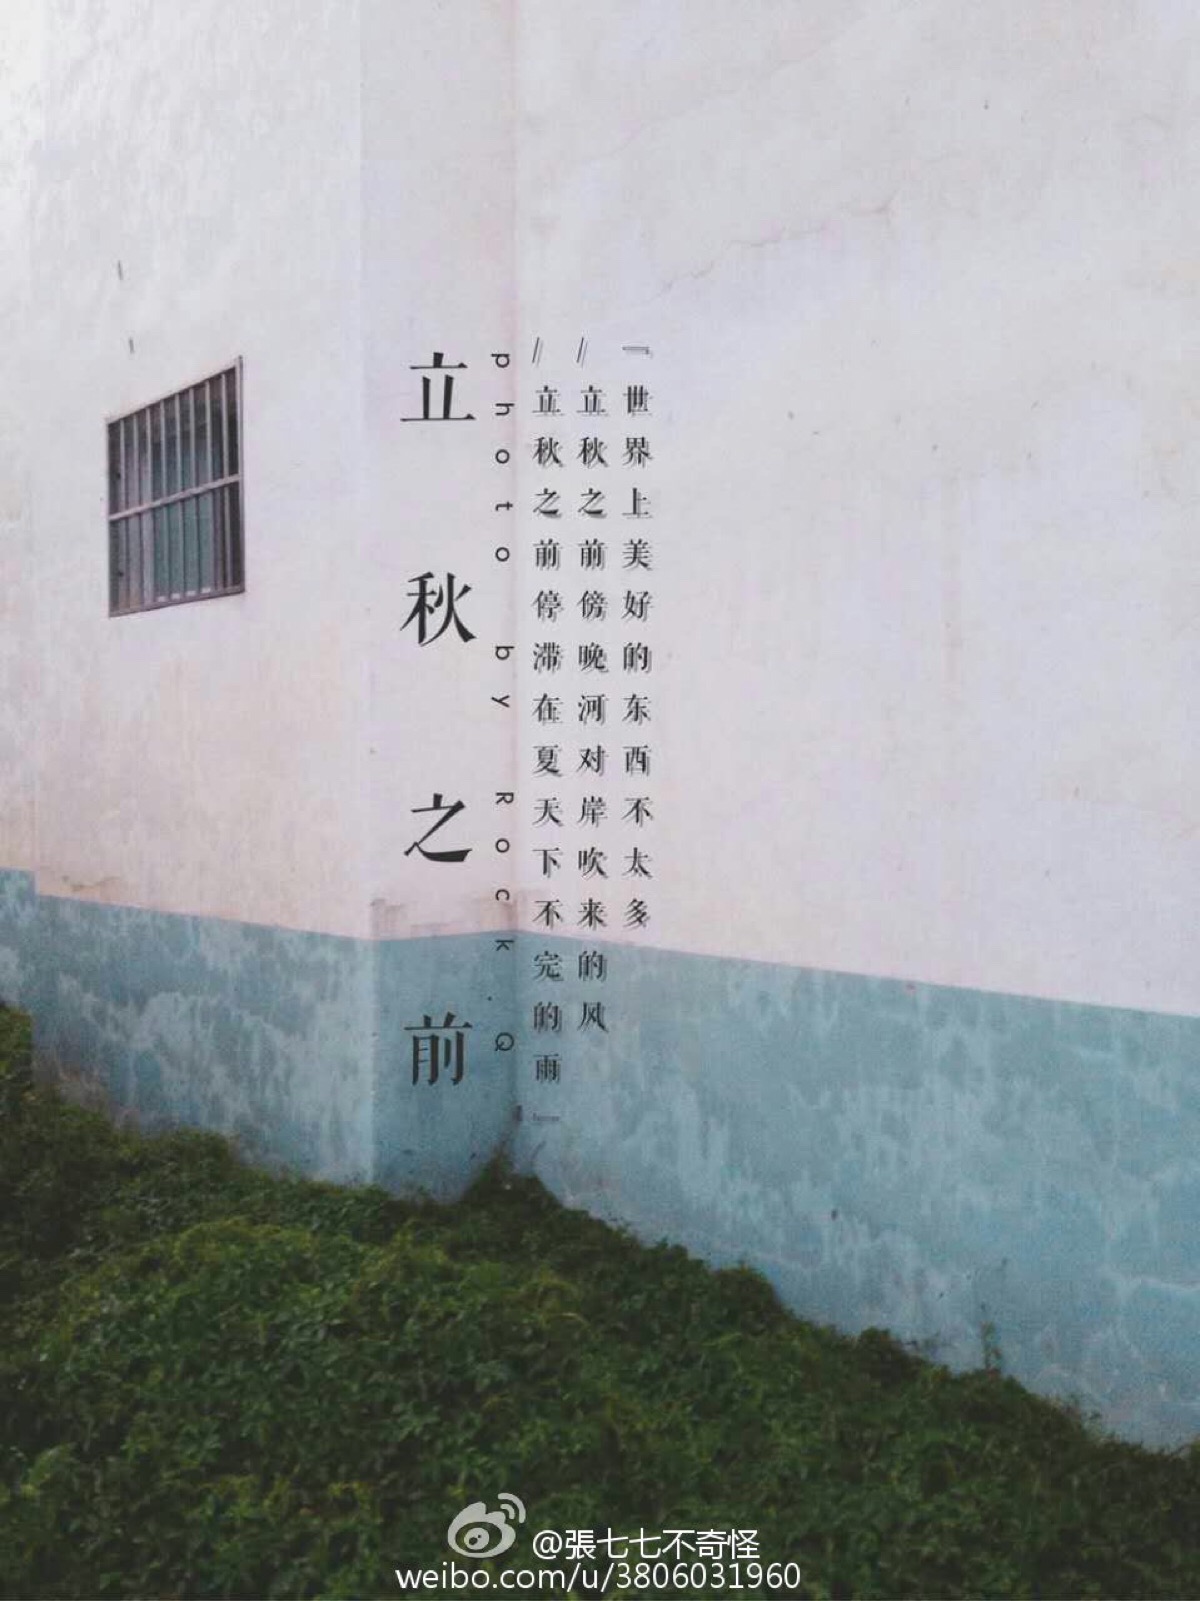 立秋之前
photo by Rock Q
『世界上美好的东西不太多
//立秋之前傍晚河对岸吹来的风
//立秋之前停滞在夏天下不完的雨』
@張七七不奇怪
weibo.com/u/3806031960